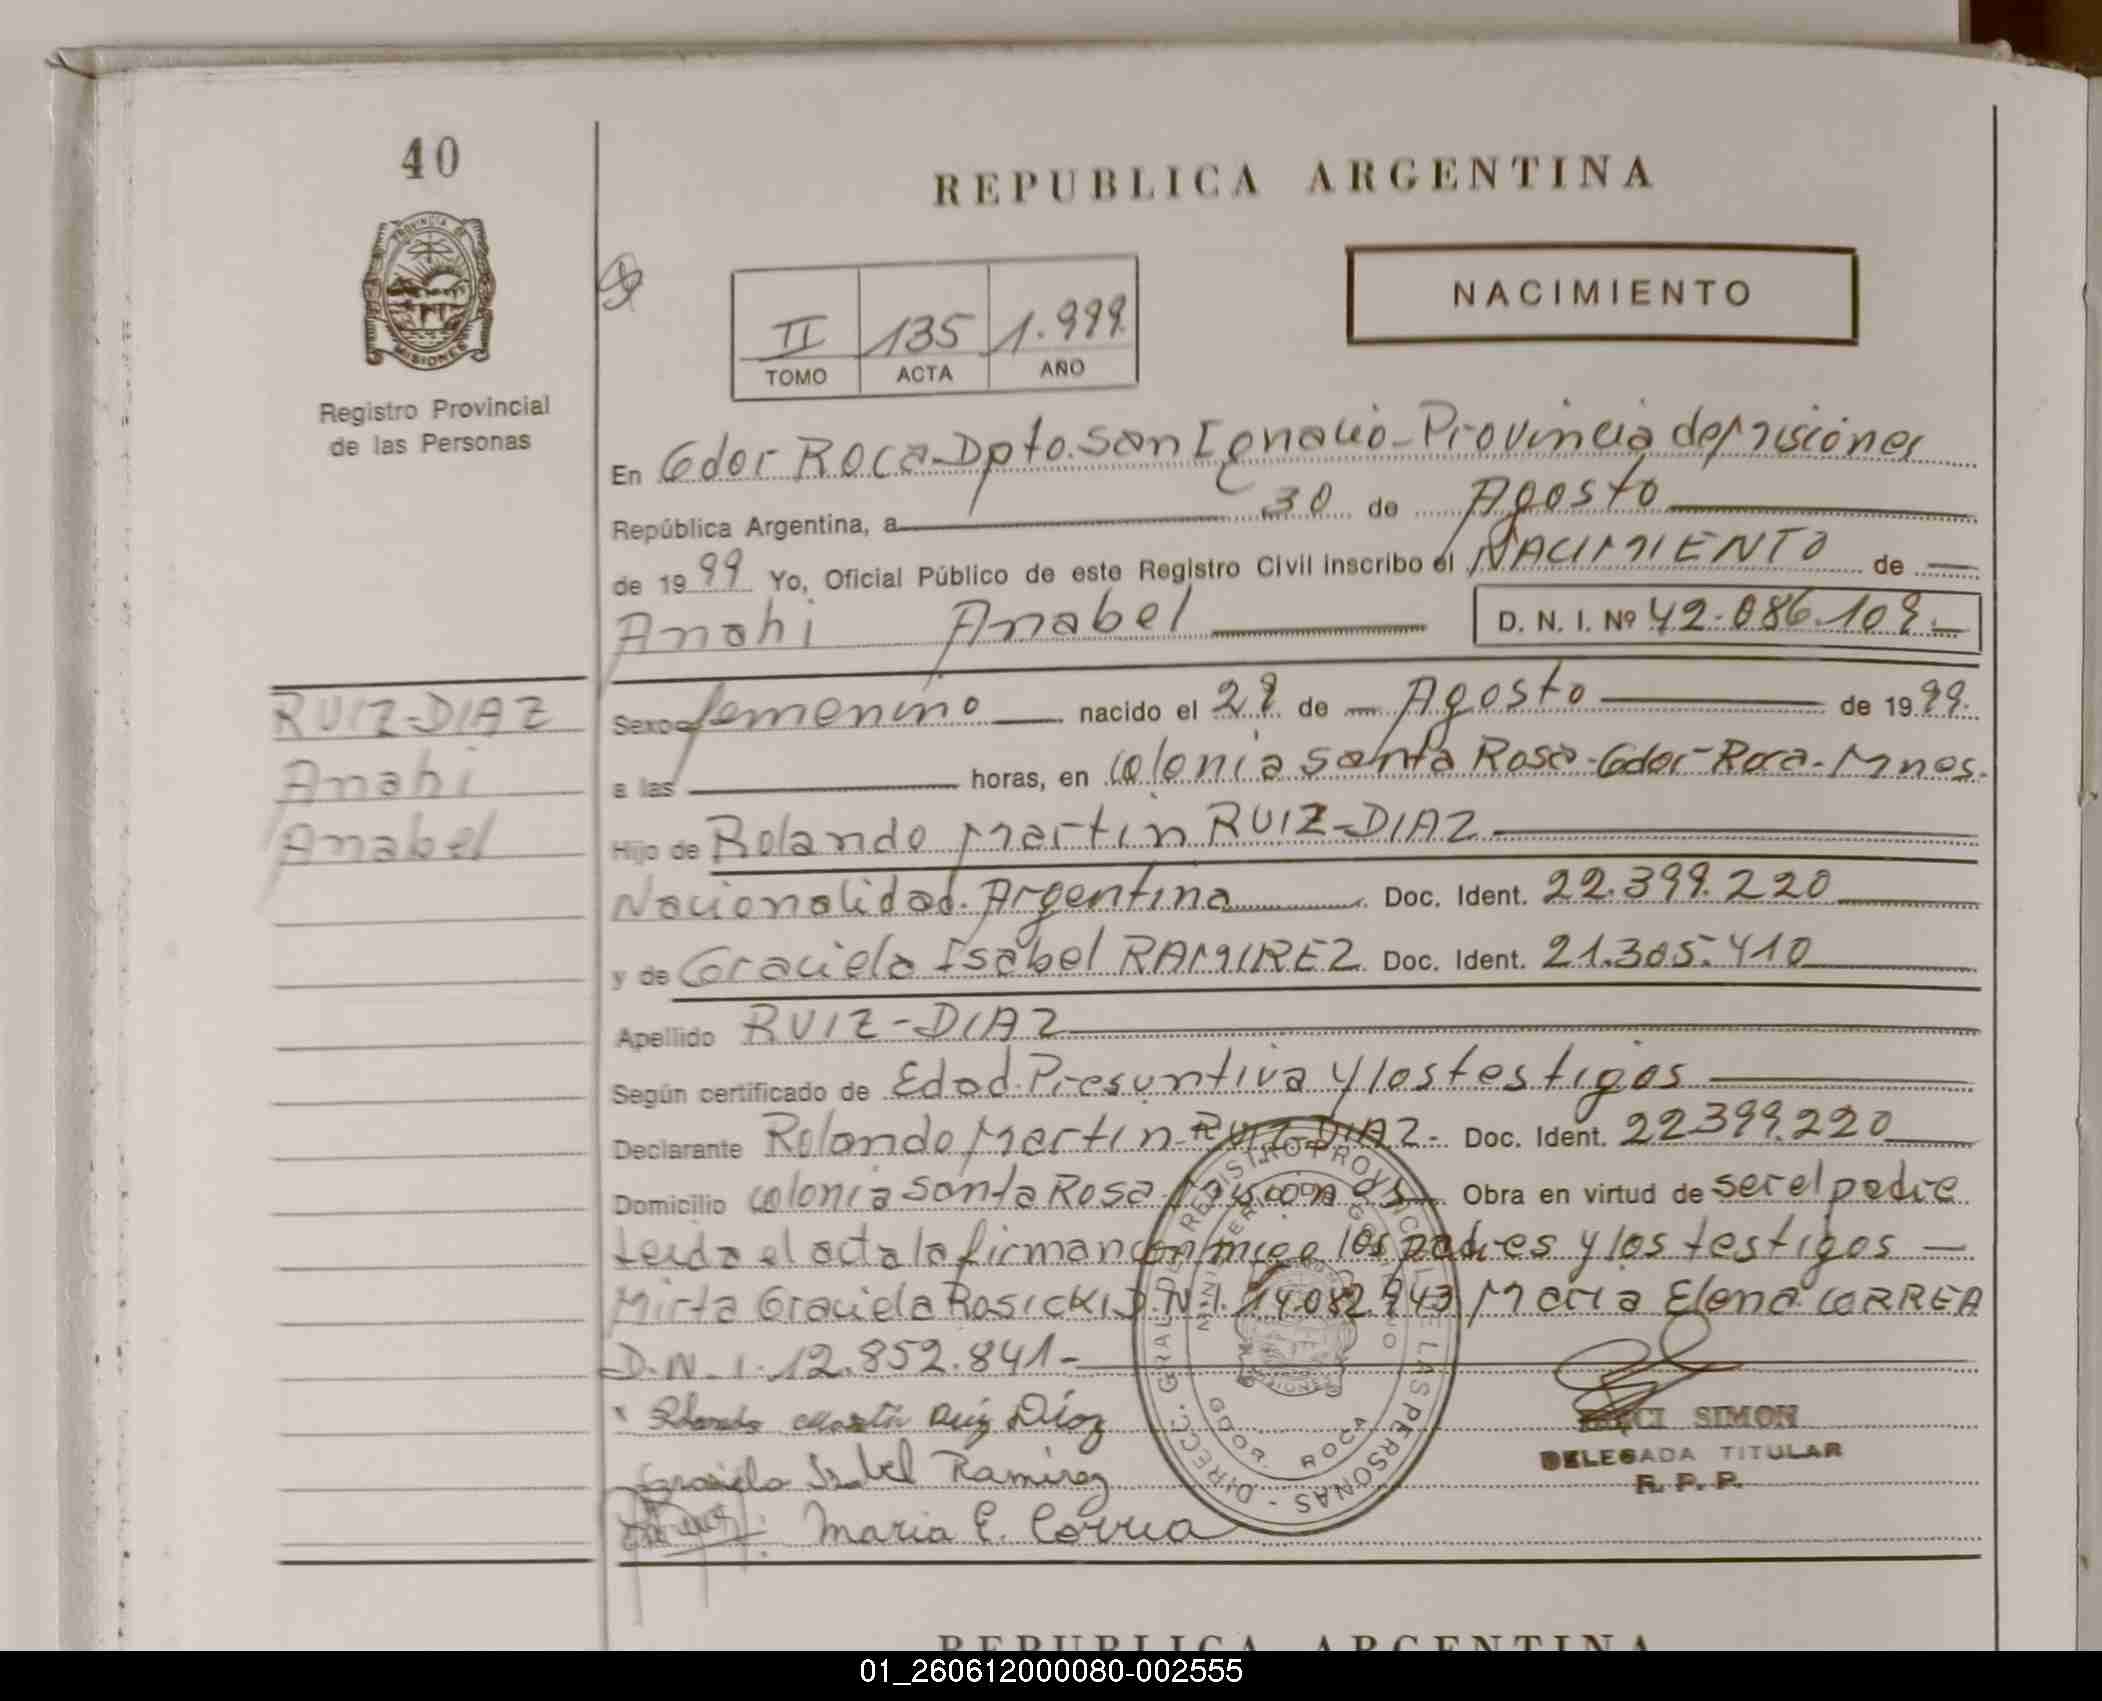 40
REPUBLICA ARGENTINA
PROVINCIA DE
MISIONES
NACIMIENTO
II 135 1.999
TOMO ACTA AÑO
Registro Provincial
de las Personas
En Gdor Roca Dpto. San Ignacio - Provincia de Misiones
República Argentina, a 30 de Agosto
de 1999 Yo, Oficial Público de este Registro Civil inscribo el NACIMIENTO de
Anahi Anabel D. N. I. Nº 42.086.109.-
RUIZ-DIAZ
Anahi
Anabel
Sexo femenino nacido el 29 de Agosto de 1999.
a las horas, en colonia Santa Rosa - Gdor - Roca - Mnes.
Hijo de Rolando Martin RUIZ-DIAZ
Nacionalidad. Argentina Doc. Ident. 22.399.220
y de Graciela Isabel RAMIREZ Doc. Ident. 21.305.410
Apellido RUIZ-DIAZ
Según certificado de Edad Presuntiva y los testigos
Declarante Rolando Martin RUIZ DIAZ - Doc. Ident. 22399.220
Domicilio colonia Santa Rosa - Misiones Obra en virtud de ser el padre
Leida el acta la firman conmigo los padres y los testigos —
Mirta Graciela ROSICKI D.N.I. 14.082.943 Maria Elena CORREA
D.N.I. 12.852.841-
Rolando Martin Ruiz Díaz
Graciela Isabel Ramirez
Maria E. Correa
SIMON
DELEGADA TITULAR
R. P. P.
DIRECC. GRAL. DEL REGISTRO PROVINCIAL DE LAS PERSONAS -
MINISTERIO DE GOBIERNO
MISIONES
GDOR. ROCA
REPUBLICA ARGENTINA
01_260612000080-002555